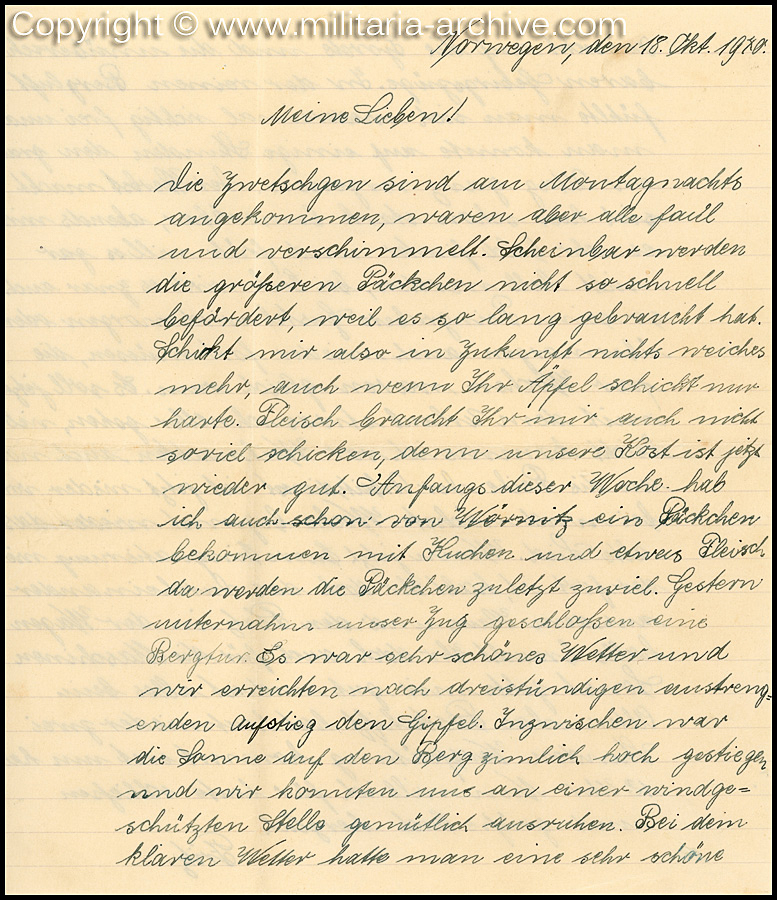 Copyright © www.militaria-archive.com
Norwegen, den 18. Okt. 1940.
Meine Lieben!
Die Zwetschgen sind am Montagnachts
angekommen, waren aber alle faul
und verschimmelt. Scheinbar werden
die größeren Päckchen nicht so schnell
befördert, weil es so lang gebraucht hat.
Schickt mir also in Zukunft nichts weiches
mehr, auch wenn Ihr Äpfel schickt nur
harte. Fleisch braucht Ihr mir auch nicht
soviel schicken, denn unsere Kost ist jetzt
wieder gut. Anfangs dieser Woche hab
ich auch schon von Wörnitz ein Päckchen
bekommen mit Kuchen und etwas Fleisch
da werden die Päckchen zuletzt zuviel. Gestern
unternahm unser Zug geschloßen eine
Bergtur. Es war sehr schönes Wetter und
wir erreichten nach dreistündigen anstreng-
enden Aufstieg den Gipfel. Inzwischen war
die Sonne auf den Berg zimlich hoch gestiegen
und wir konnten uns an einer windge=
schützten Stelle gemütlich ausruhen. Bei dem
klaren Wetter hatte man eine sehr schöne